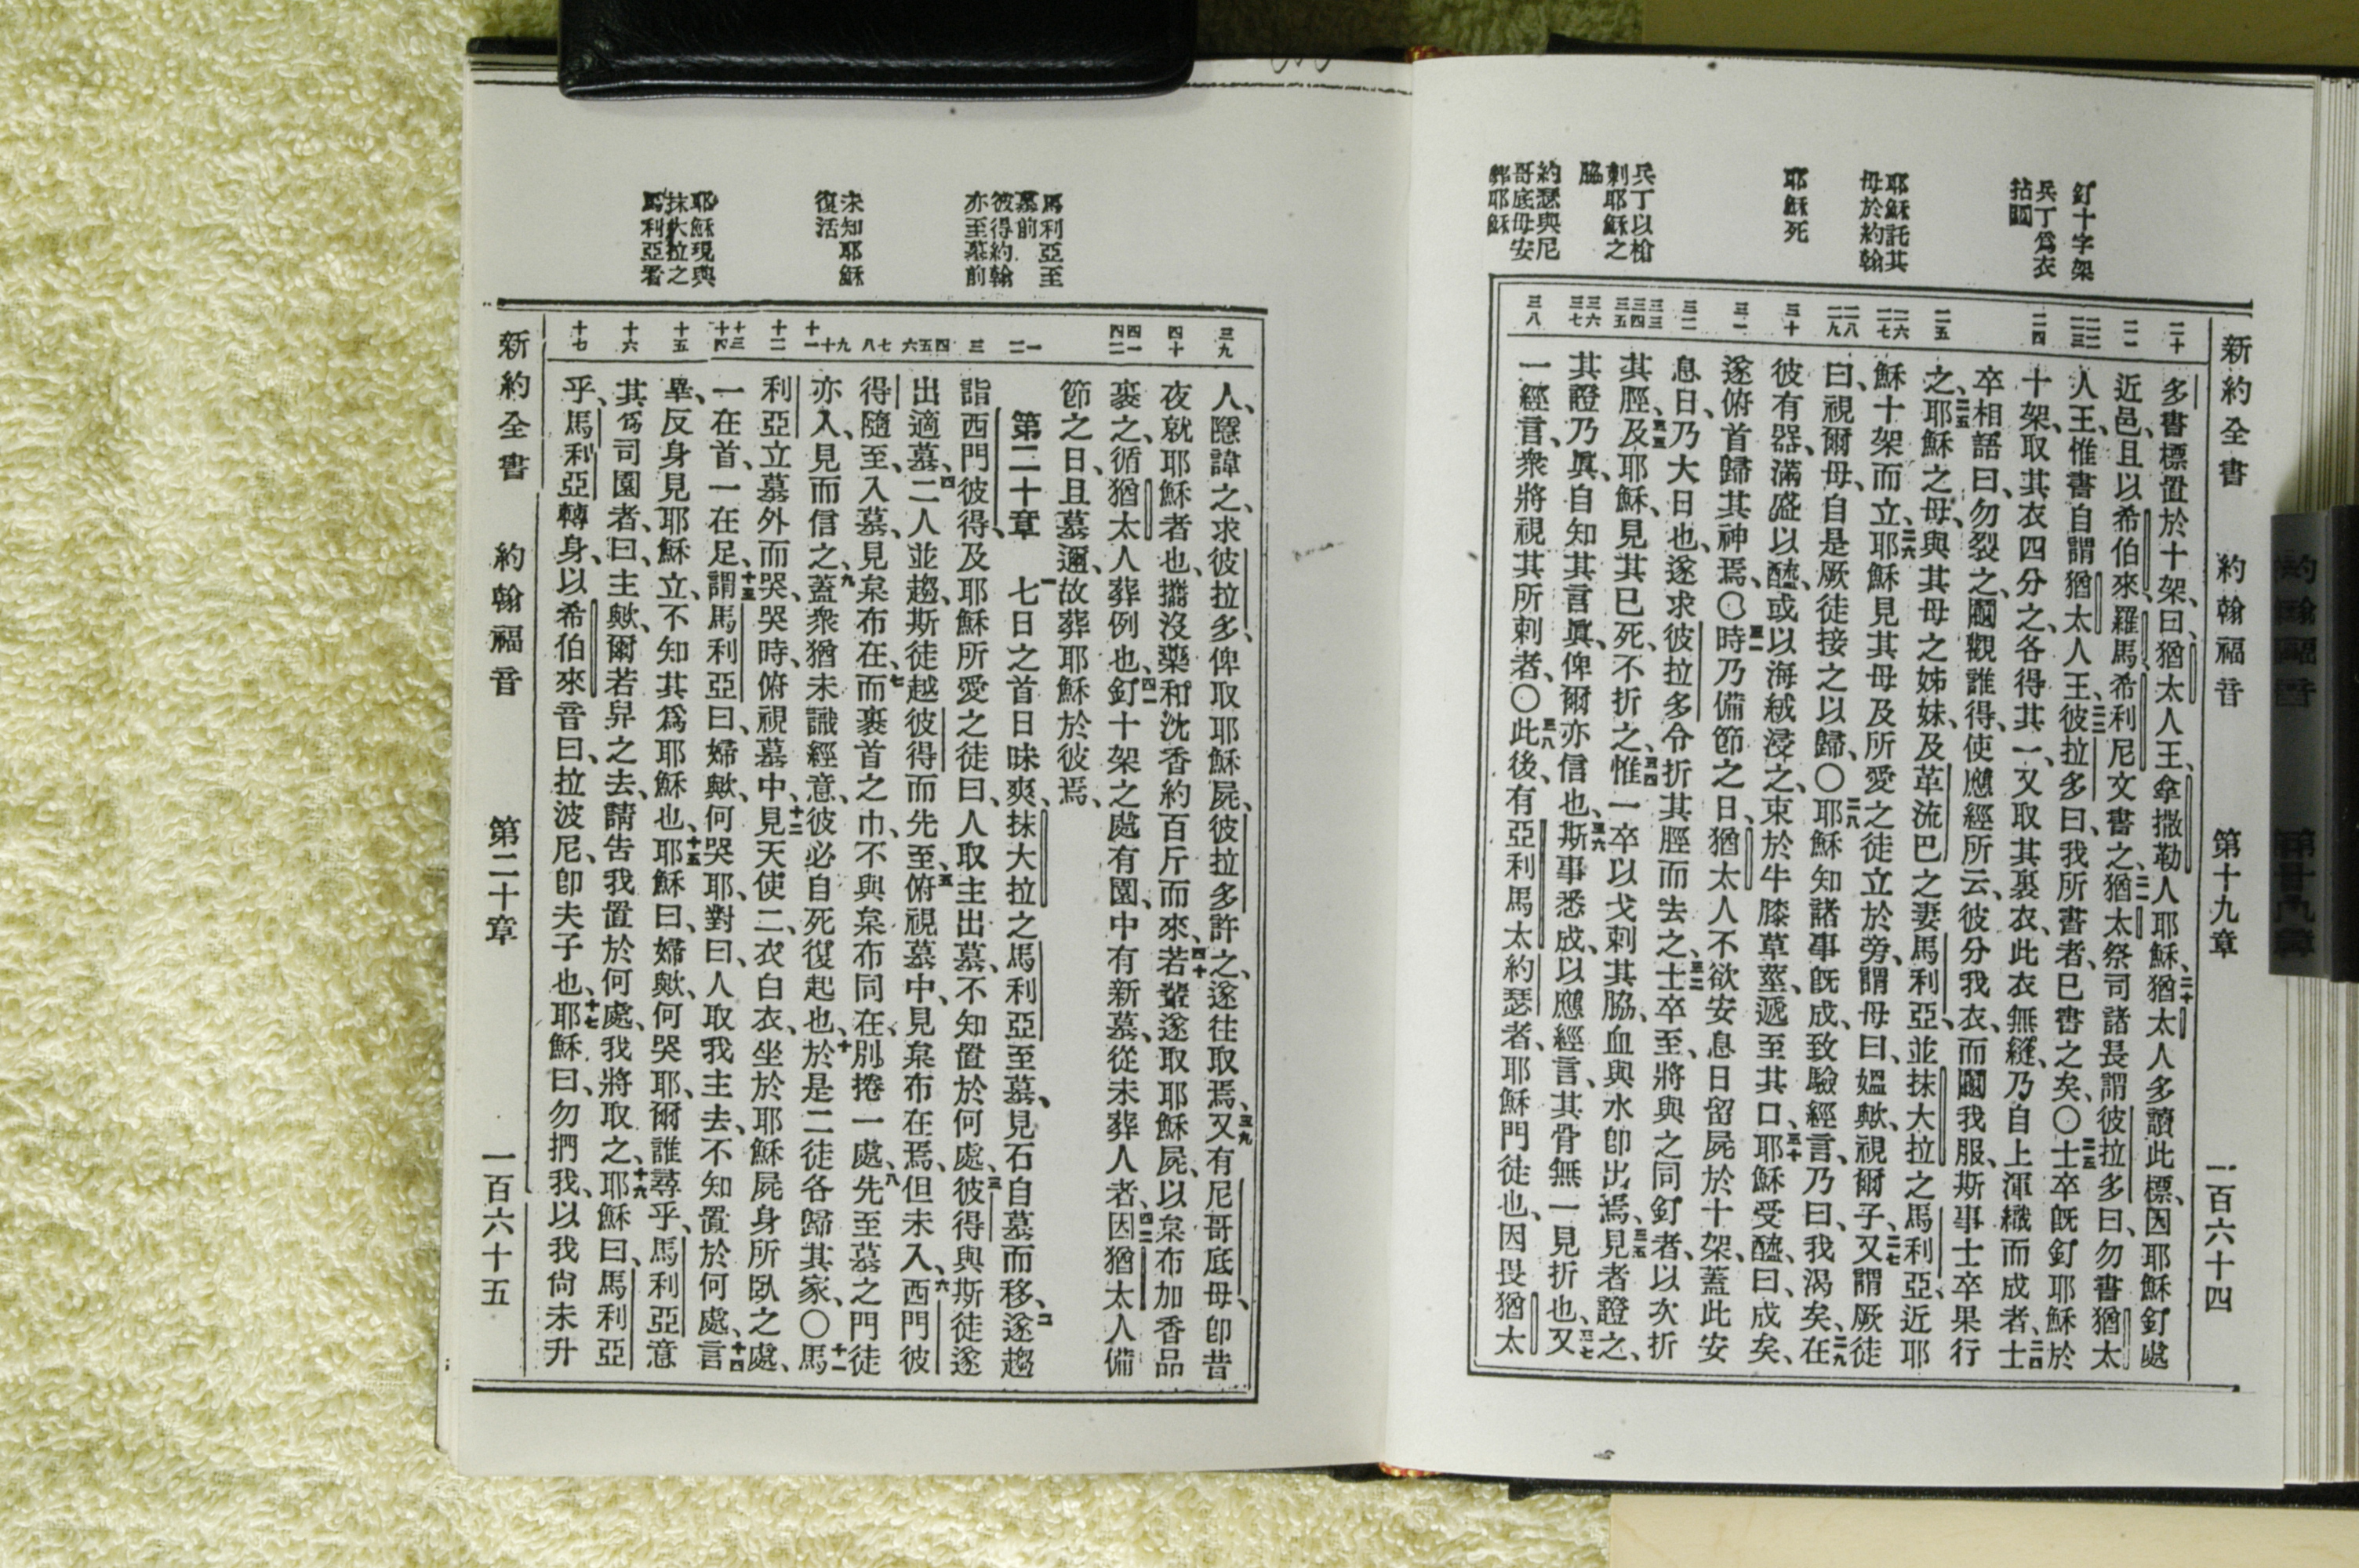 新約全書 約翰福音 第十九章 一百六十四
釘十字架
兵丁爲衣
拈鬮
耶穌託其
母於約翰
耶穌死
兵丁以槍
刺耶穌之
脇
約瑟與尼
哥底母安
葬耶穌
二十
二一
二二
二三
二四
二五
二六
二七
二八
二九
三十
三一
三二
三三
三四
三五
三六
三七
三八
多書標置於十架、曰、猶太人王、拿撒勒人耶穌、二十猶太人多讀此標、因耶穌釘處
近邑、且以希伯來、羅馬、希利尼文書之、二一猶太祭司諸長謂彼拉多曰、勿書猶太
人王、惟書自謂猶太人王、二二彼拉多曰、我所書者、已書之矣、〇二三士卒既釘耶穌於
十架、取其衣四分之、各得其一、又取其裏衣、此衣無縫、乃自上渾織而成者、二四士
卒相語曰、勿裂之、鬮觀誰得、使應經所云、彼分我衣、而鬮我服、斯事士卒果行
之、二五耶穌之母、與其母之姊妹、及革流巴之妻馬利亞、並抹大拉之馬利亞、近耶
穌十架而立、二六耶穌見其母及所愛之徒立於旁、謂母曰、媼歟、視爾子、二七又謂厥徒
曰、視爾母、自是厥徒接之以歸、〇二八耶穌知諸事既成、致驗經言、乃曰、我渴矣、二九在
彼有器、滿盛以醯、或以海絨浸之、束於牛膝草莖、遞至其口、三十耶穌受醯、曰、成矣、
遂俯首歸其神焉、〇三一時乃備節之日、猶太人不欲安息日留屍於十架、蓋此安
息日、乃大日也、遂求彼拉多令折其脛而去之、三二士卒至、將與之同釘者、以次折
其脛、三三及耶穌、見其已死、不折之、三四惟一卒以戈刺其脇、血與水卽出焉、三五見者證之、
其證乃眞、自知其言眞、俾爾亦信也、三六斯事悉成、以應經言、其骨無一見折也、三七又
一經言、衆將視其所刺者、〇三八此後、有亞利馬太約瑟者、耶穌門徒也、因畏猶太
馬利亞至
墓前
彼得約翰
亦至墓前
未知耶穌
復活
耶穌現與
抹大拉之
馬利亞看
三九
四十
四一
四二
一
二
三
四
五
六
七
八
九
十
十一
十二
十三
十四
十五
十六
十七
人、隱諱之、求彼拉多、俾取耶穌屍、彼拉多許之、遂往取焉、三九又有尼哥底母、卽昔
夜就耶穌者也、攜沒藥和沈香約百斤而來、四十若輩遂取耶穌屍、以枲布加香品
裹之、循猶太人葬例也、四一釘十架之處有園、中有新墓、從未葬人者、四二因猶太人備
節之日、且墓邇、故葬耶穌於彼焉、
第二十章 一七日之首日昧爽、抹大拉之馬利亞至墓、見石自墓而移、二遂趨
詣西門彼得、及耶穌所愛之徒曰、人取主出墓、不知置於何處、三彼得與斯徒遂
出適墓、四二人並趨、斯徒越彼得而先至、五俯視墓中、見枲布在焉、但未入、六西門彼
得隨至、入墓、見枲布在、七而裹首之巾、不與枲布同在、別捲一處、八先至墓之門徒
亦入、見而信之、九蓋衆猶未識經意、彼必自死復起也、十於是二徒各歸其家、〇十一馬
利亞立墓外而哭、哭時、俯視墓中、十二見天使二、衣白衣、坐於耶穌屍身所臥之處、
一在首、一在足、十三謂馬利亞曰、婦歟、何哭耶、對曰、人取我主去、不知置於何處、十四言
畢、反身見耶穌立、不知其爲耶穌也、十五耶穌曰、婦歟、何哭耶、爾誰尋乎、馬利亞意
其爲司園者、曰、主歟、爾若舁之去、請告我置於何處、我將取之、十六耶穌曰、馬利亞
乎、馬利亞轉身、以希伯來音曰、拉波尼、卽夫子也、十七耶穌曰、勿捫我、以我尙未升
新約全書 約翰福音 第二十章 一百六十五